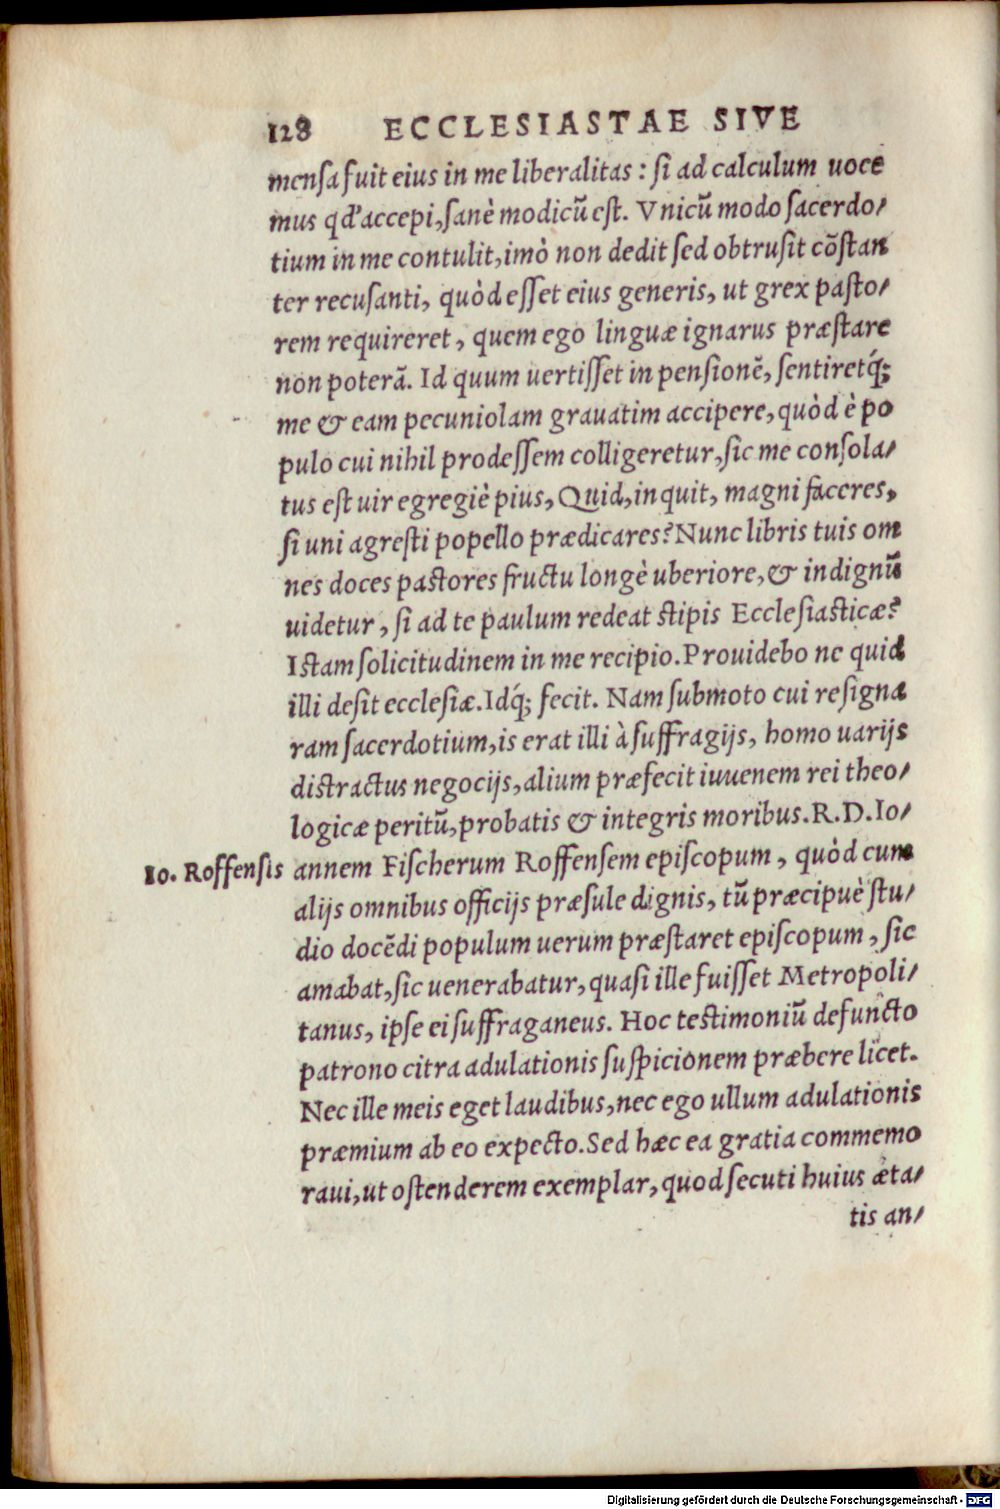 128 ECCLESIASTAE SIVE
mensa fuit eius in me liberalitas : si ad calculum uoce
mus qd' accepi, sanè modicũ est. Vnicũ modo sacerdo/
tium in me contulit, imò non dedit sed obtrusit cõstan
ter recusanti, quòd esset eius generis, ut grex pasto/
rem requireret, quem ego linguæ ignarus præstare
non poterã. Id quum uertisset in pensionẽ, sentiretq́;
me & eam pecuniolam grauatim accipere, quòd è po
pulo cui nihil prodessem colligeretur, sic me consola/
tus est uir egregiè pius, Quid, inquit, magni faceres,
si uni agresti popello prædicares? Nunc libris tuis om
nes doces pastores fructu longè uberiore, & indignũ
uidetur, si ad te paulum redeat stipis Ecclesiasticæ?
Istam solicitudinem in me recipio. Prouidebo ne quid
illi desit ecclesiæ. Idq́; fecit. Nam submoto cui resigna
ram sacerdotium, is erat illi à suffragijs, homo uarijs
distractus negocijs, alium præfecit iuuenem rei theo/
logicæ peritũ, probatis & integris moribus. R. D. Io/
Io. Roffensis annem Fischerum Roffensem episcopum, quòd cum
alijs omnibus officijs præsule dignis, tũ præcipuè stu/
dio docẽdi populum uerum præstaret episcopum, sic
amabat, sic uenerabatur, quasi ille fuisset Metropoli/
tanus, ipse ei suffraganeus. Hoc testimoniũ defuncto
patrono citra adulationis suspicionem præbere licet.
Nec ille meis eget laudibus, nec ego ullum adulationis
præmium ab eo expecto. Sed hæc ea gratia commemo
raui, ut ostenderem exemplar, quod secuti huius æta/
tis an/
Digitalisierung gefördert durch die Deutsche Forschungsgemeinschaft - DFG